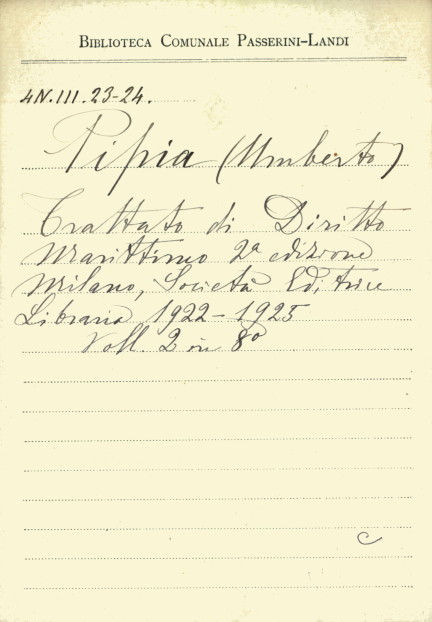 BIBLIOTECA COMUNALE PASSERINI-LANDI
4N.III.23-24.
Pipia (Umberto)
Trattato di Diritto
Marittimo 2ª edizione
Milano, Società Editrice
Libraria 1922-1925
Voll. 2 in 8º
C